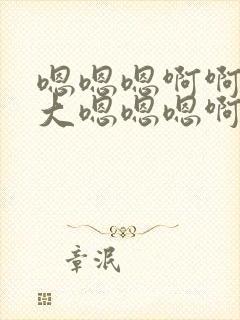 嗯嗯嗯啊啊
大嗯嗯嗯啊
章泯